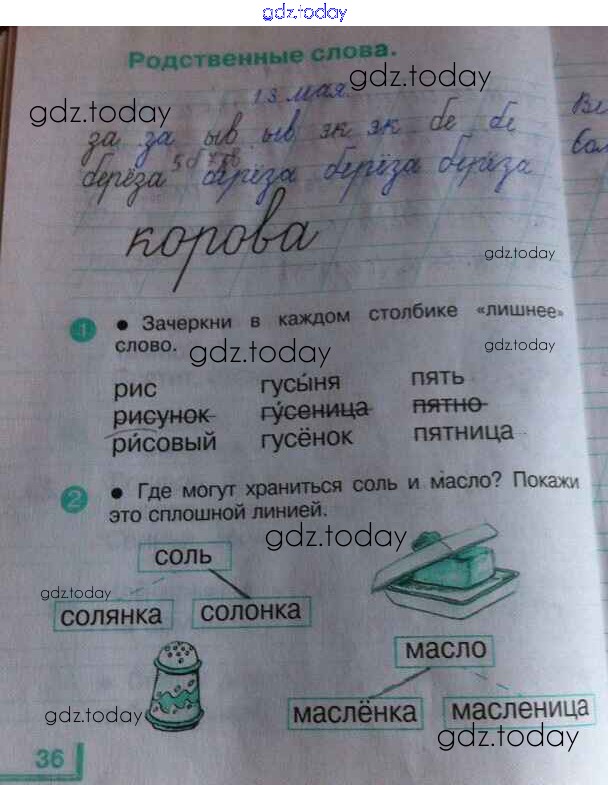 gdz.today
Родственные слова.
13 мая.
gdz.today
gdz.today
за за ыв ыв эк эк бе бе
берёза берёза берёза берёза
корова
gdz.today
1 • Зачеркни в каждом столбике «лишнее»
слово.
gdz.today
gdz.today
рис гусы́ня пять
рисунок гу́сеница пятно
ри́совый гусёнок пятница
2 • Где могут храниться соль и масло? Покажи
это сплошной линией.
gdz.today
соль
gdz.today
солянка солонка
масло
gdz.today
маслёнка масленица
gdz.today
36